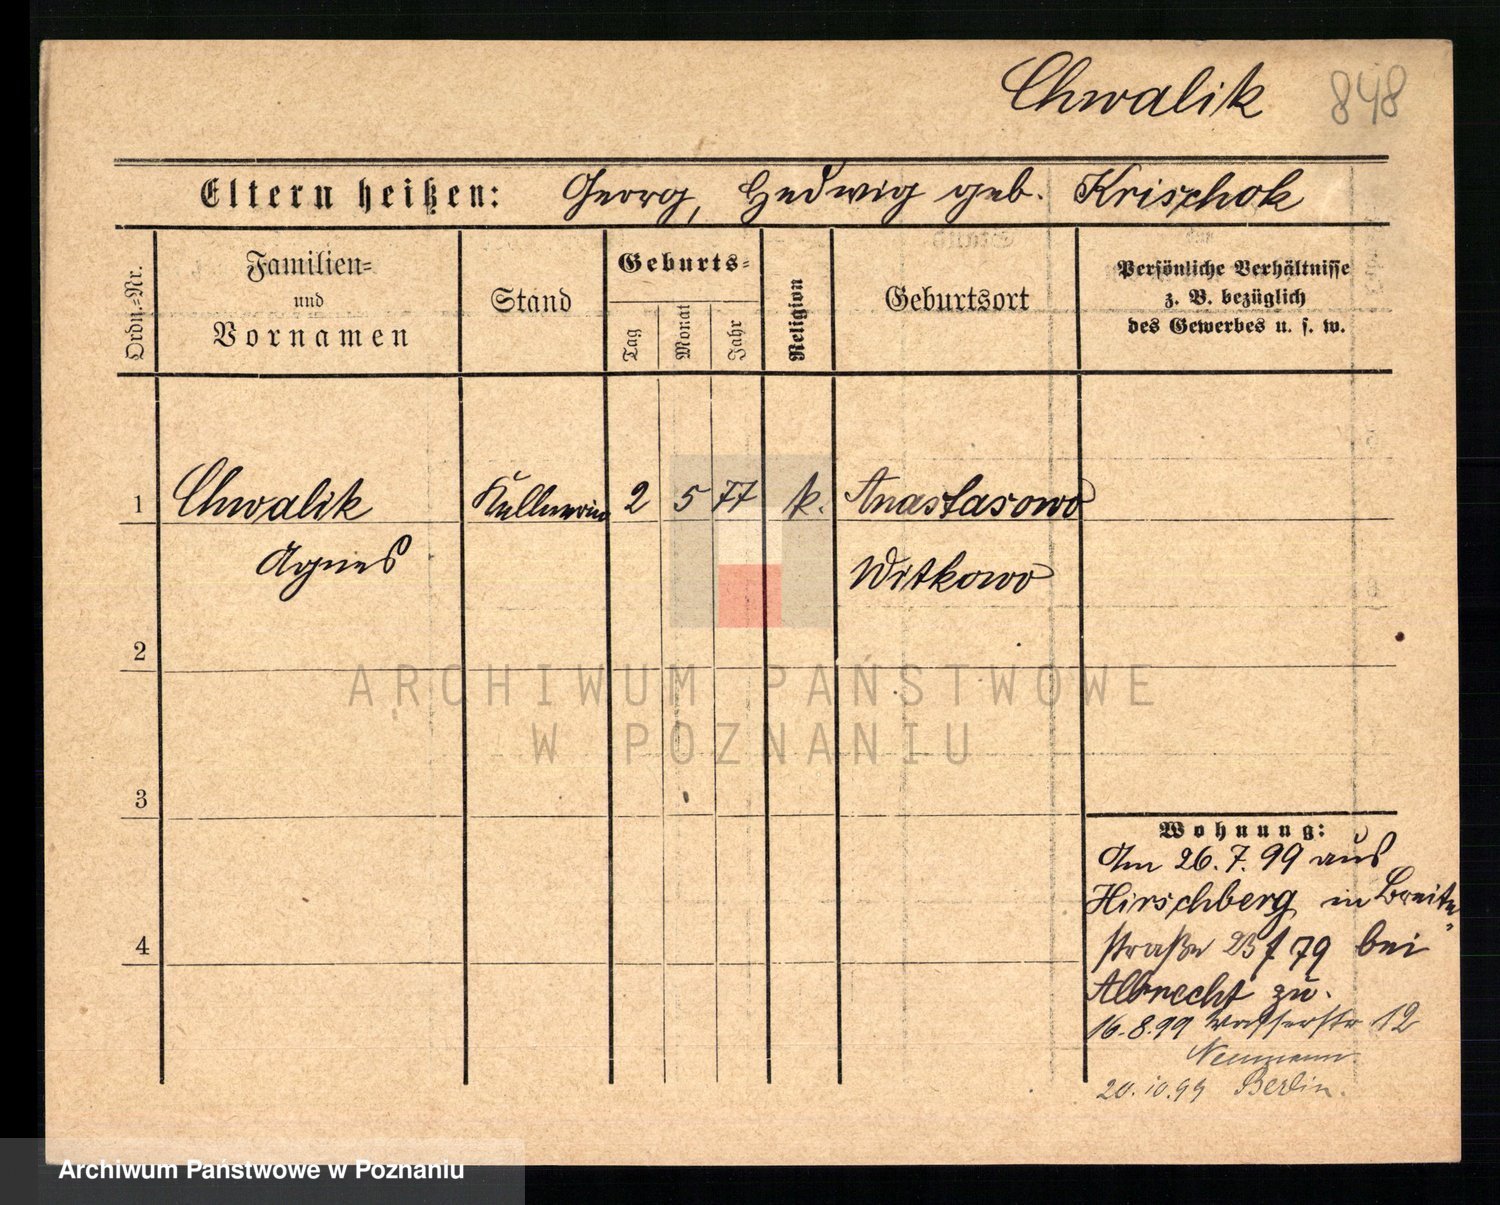 Chwalik 848
Eltern heißen: Georg, Hedwig geb. Krischok
Ordn.=Nr.
Familien=
und
Vornamen
Stand
Geburts=
Tag
Monat
Jahr
Religion
Geburtsort
Persönliche Verhältnisse
z. B. bezüglich
des Gewerbes u. s. w.
1 Chwalik Kellnerin 2 5 77 k. Anastasowo
Agnes Witkowo
2
ARCHIWUM PAŃSTWOWE
W POZNANIU
3
4
Wohnung:
Am 26.7.99 aus
Hirschberg in Breite
straße 79 bei
Albrecht zu.
16.8.99 Wasserstr 12
Neumann
20.10.99 Berlin.
Archiwum Państwowe w Poznaniu